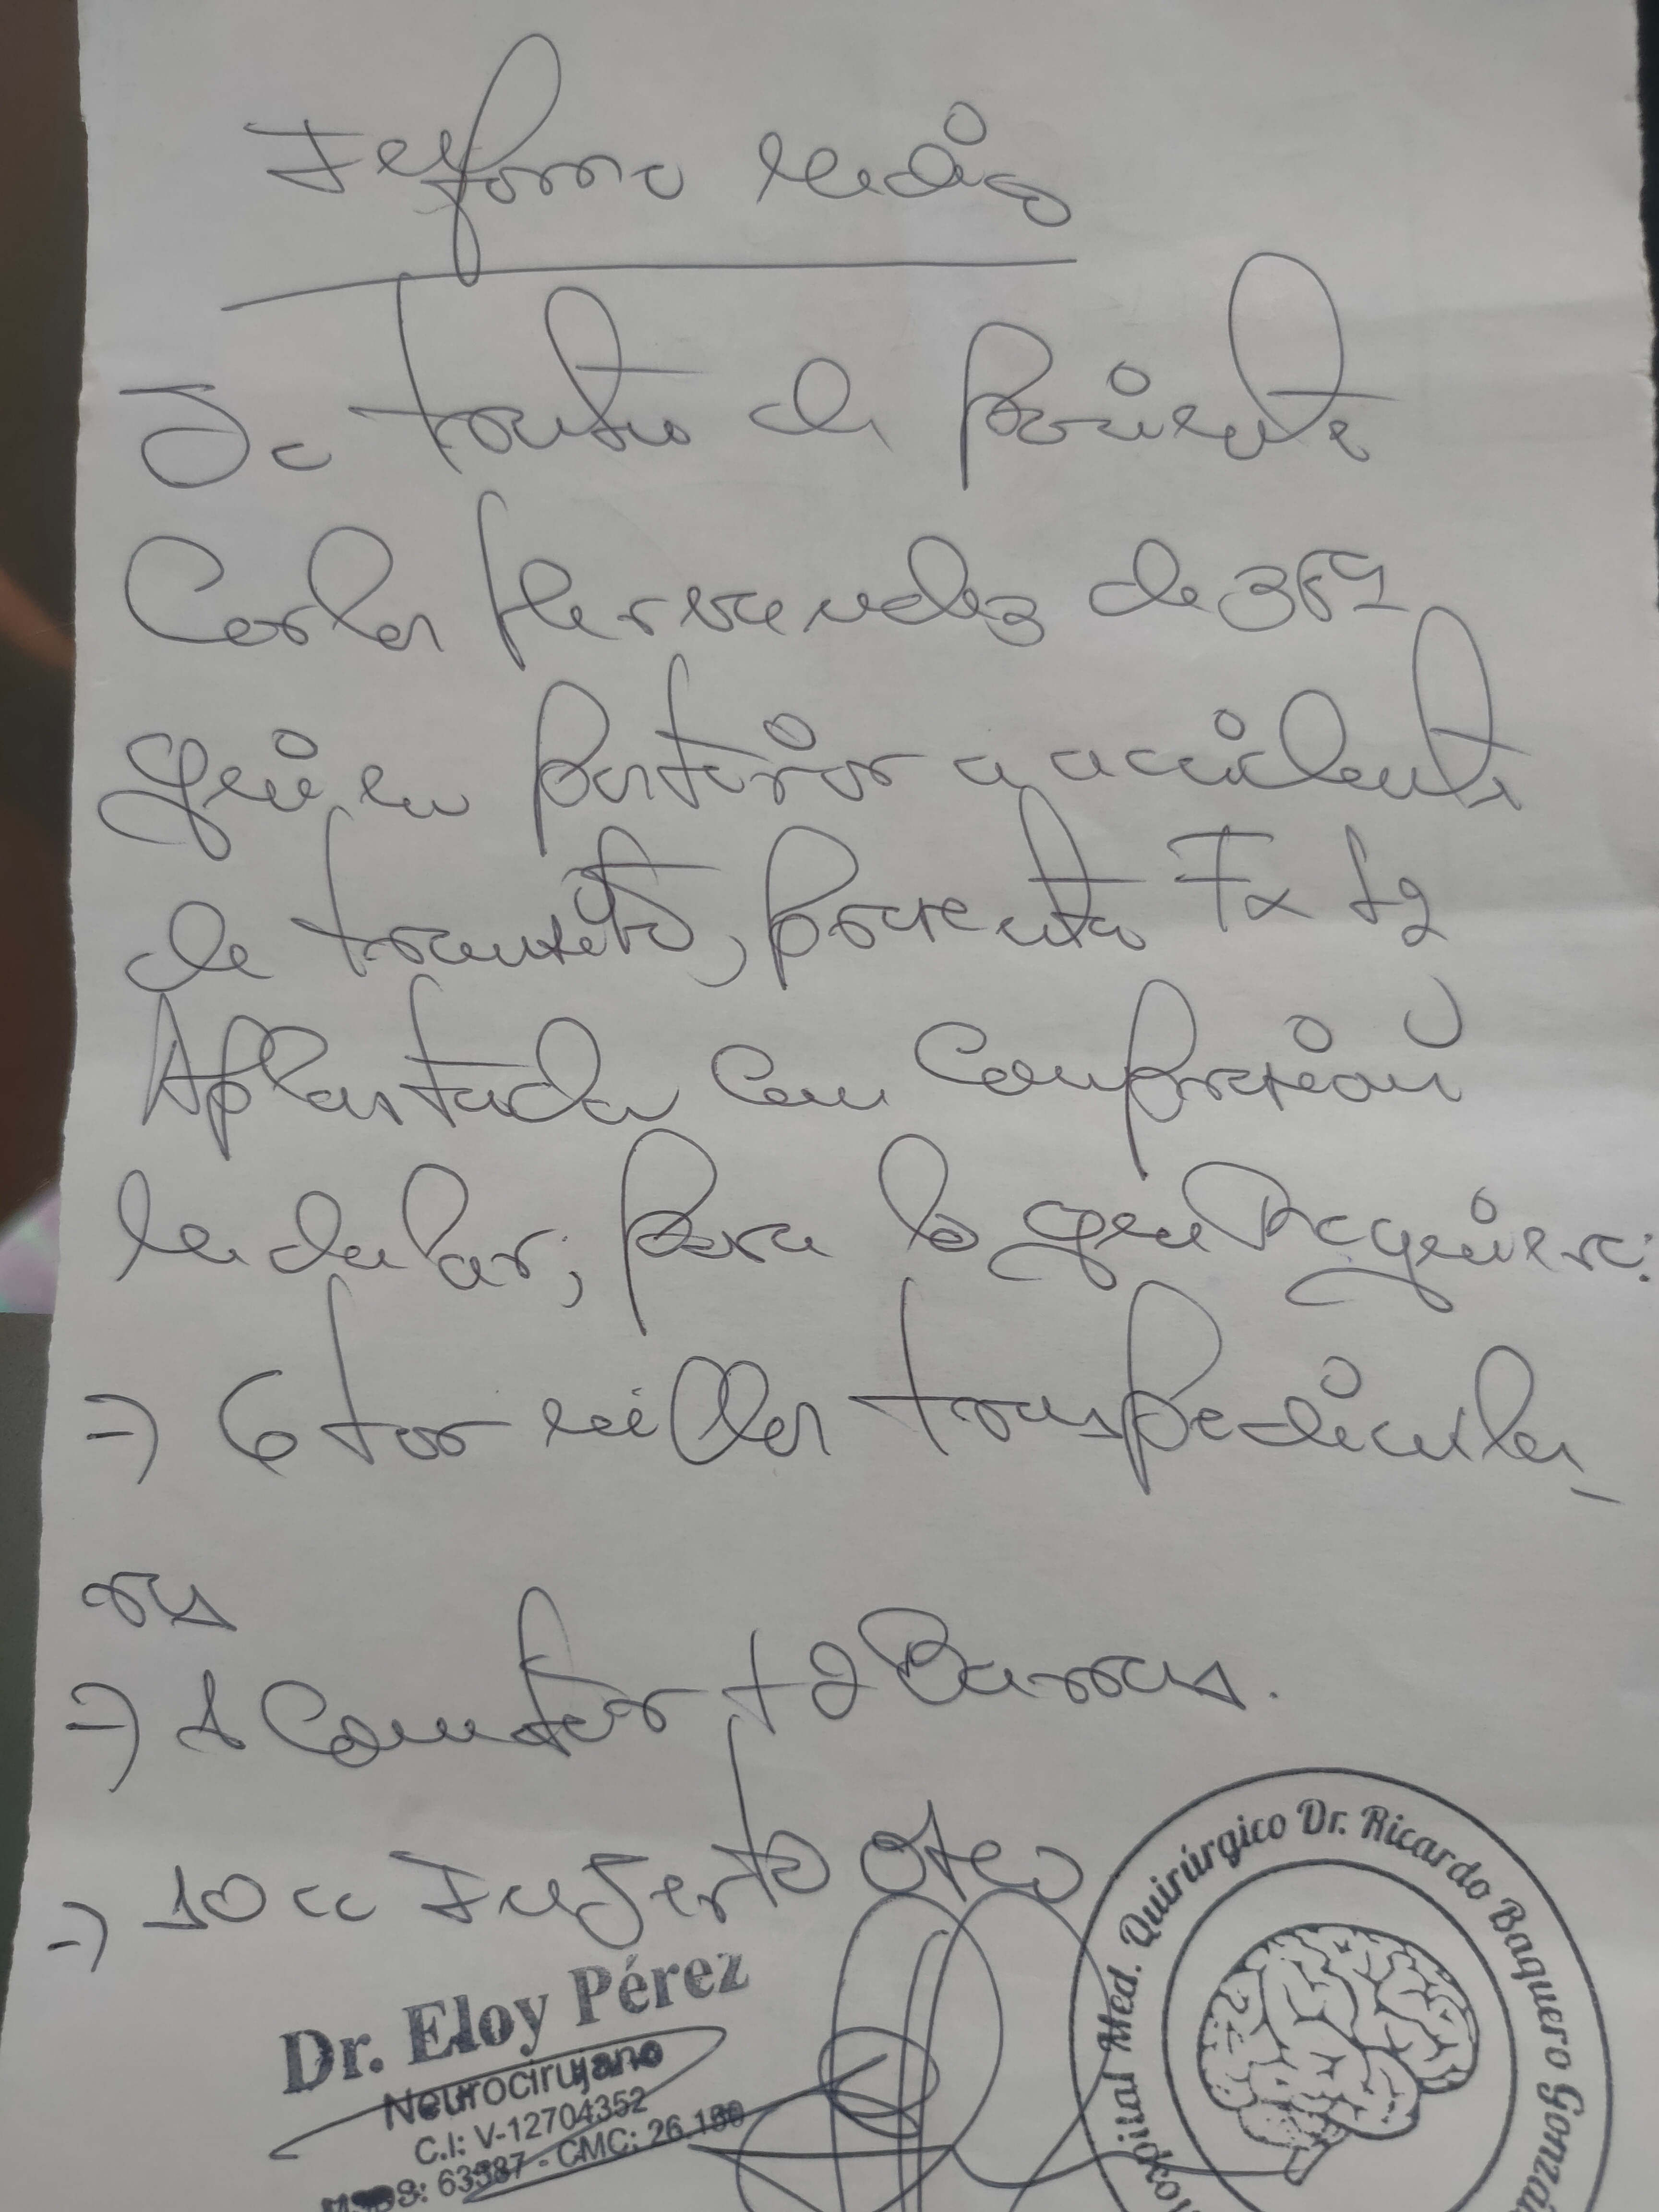 Informe médico
Se trata de paciente
Carlos Hernandez de 36
quien posterior a accidente
de transito, presenta Fx L2
Aplastada con compresión
Medular, para lo que Requiere:
=) 6 tornillos transpedicula-
ras
=) 1 Conector + 2 Barras.
=) 10 cc Injerto Oseo
Dr. Eloy Pérez
Neurocirujano
C.I: V-12704352
63387 - CMC: 26.180
Hospital Med. Quirúrgico Dr. Ricardo Baquero Gonzá